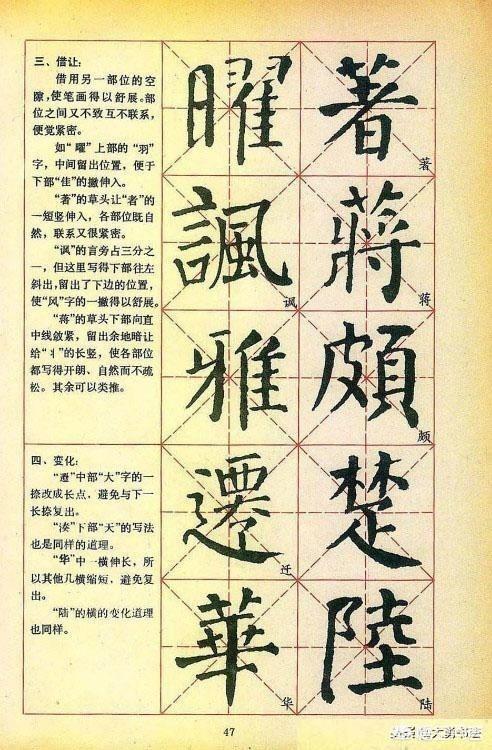 三、借让：
借用另一部位的空
隙，使笔画得以舒展。部
位之间又不致互不联系，
便觉紧密。
如“曜”上部的“羽”
字，中间留出位置，便于
下部“隹”的撇伸入。
“著”的草头让“者”的
一短竖伸入，各部位既自
然，联系又很紧密。
“讽”的言旁占三分之
一，但这里写得下部往左
斜出，留出了下边的位置，
使“风”字的一撇得以舒展。
“蒋”的草头下部向直
中线敛紧，留出余地暗让
给“丬”的长竖，使各部位
都写得开朗、自然而不疏
松。其余可以类推。
四、变化：
“遷”中部“大”字的一
捺改成长点，避免与下一
长捺复出。
“湊”下部“天”的写法
也是同样的道理。
“华”中一横伸长，所
以其他几横缩短，避免复
出。
“陆”的横的变化道理
也同样。
著
著
蔣
蒋
頗
颇
楚
陸
陆
曜
諷
讽
雅
遷
迁
華
华
47